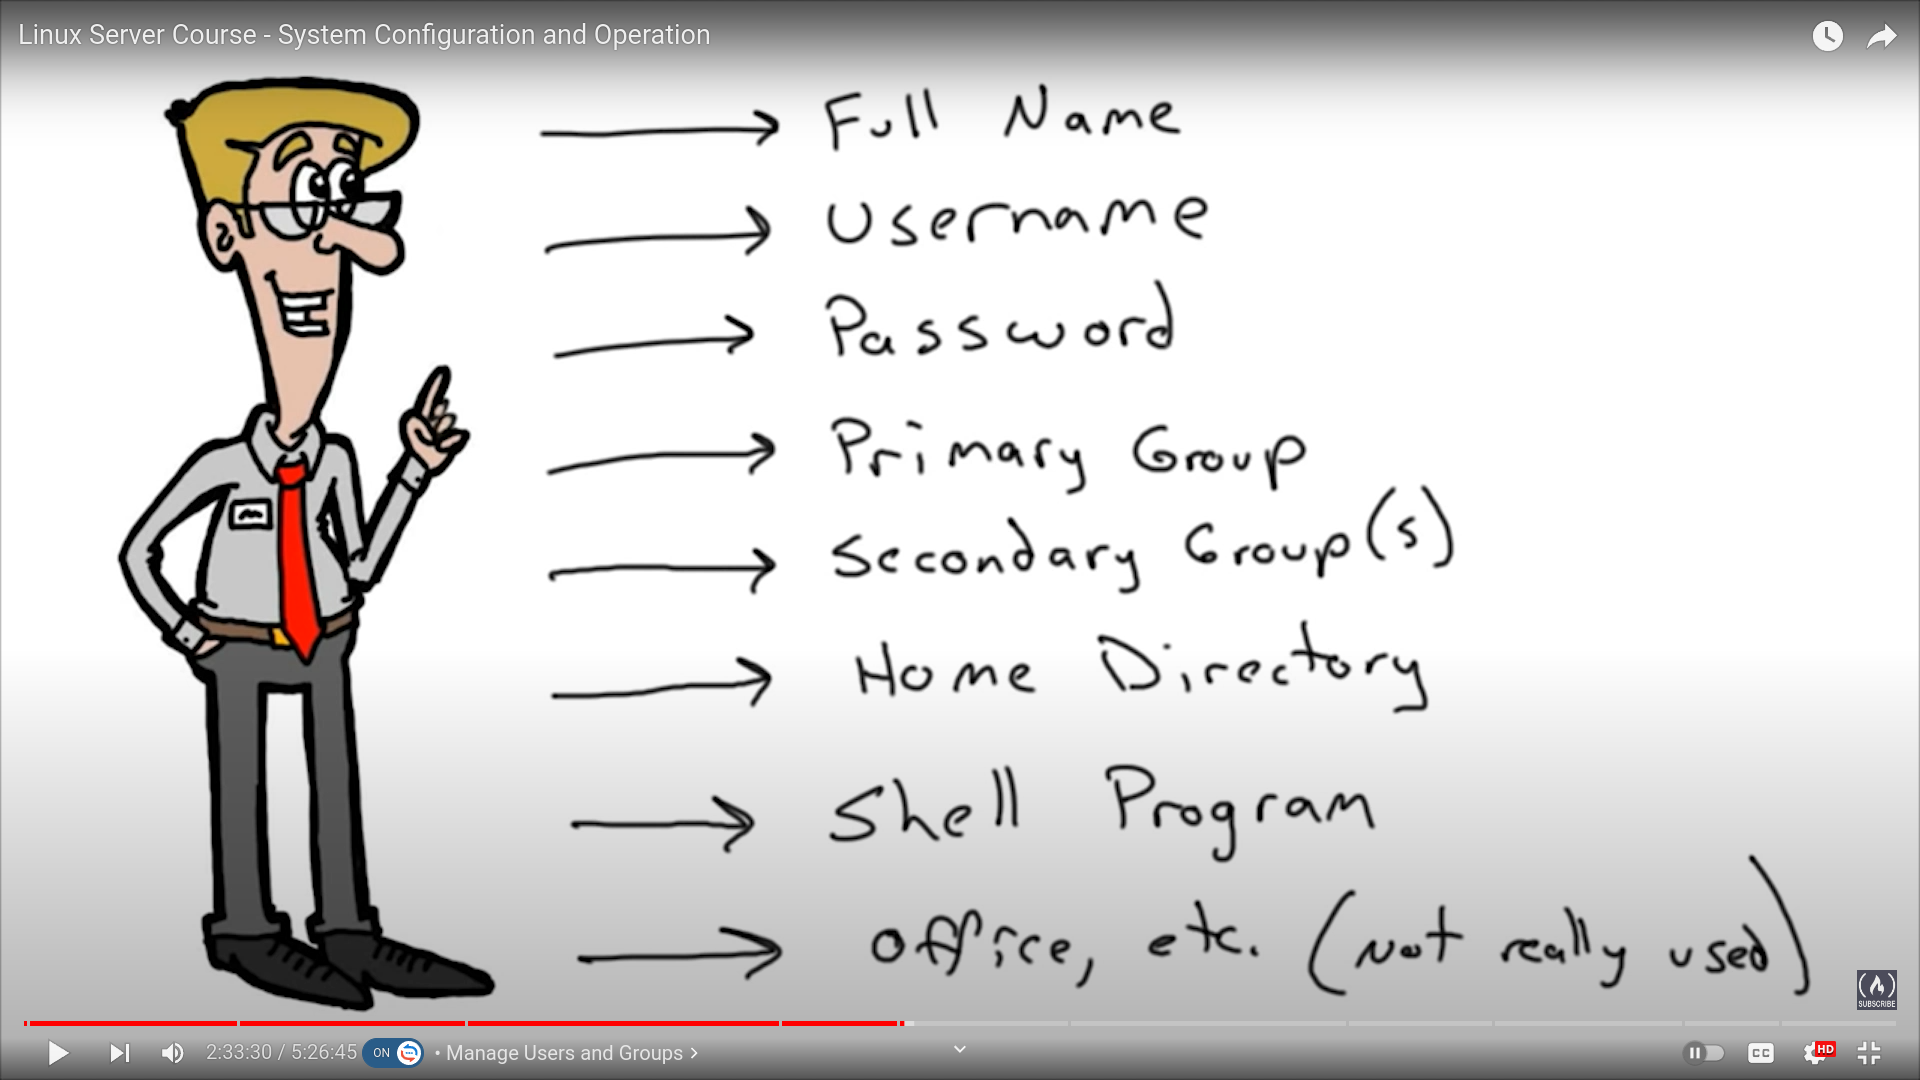 Linux Server Course - System Configuration and Operation
Full Name
Username
Password
Primary Group
Secondary Group(s)
Home Directory
Shell Program
office, etc. (not really used)
SUBSCRIBE
2:33:30 / 5:26:45 ON • Manage Users and Groups CC HD